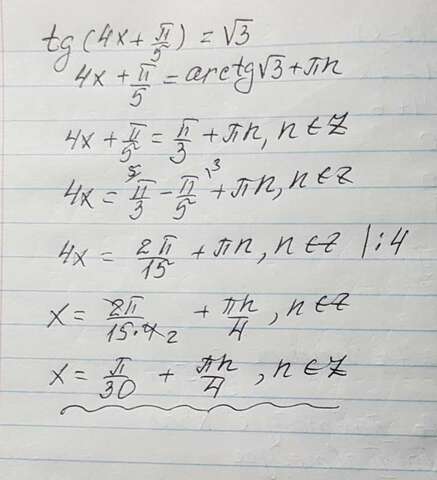 tg(4x + π/5) = √3
4x + π/5 = arctg√3 + πn
4x + π/5 = π/3 + πn, n ∈ Z
4x = ⁵π/3 − π/5 ⁽³ + πn, n ∈ Z
4x = 2π/15 + πn, n ∈ Z |:4
x = 2π/15·4 2 + πn/4, n ∈ Z
x = π/30 + πn/4, n ∈ Z